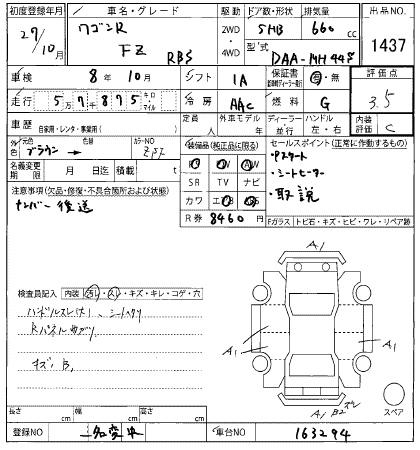 初度登録年月 車名・グレード 駆動 ドア数・形状 排気量 出品NO.
27/10月 ワゴンR FZ RBS 2WD ・ 4WD 5HB 660 cc 1437
型式 DAA-MH44S
車検 8年10月 シフト 1A 保証書 有・無 評価点
走行 5万7千875 キロ マイル 冷房 AAC 燃料 G 3.5
車歴 自家用・レンタ・事業用( ) 定員 人 外車モデル 年 ディーラー 並行 ハンドル 左・右 内装評価 C
外色 元色 ブラウン → 色替 カラーNO
名義変更期限 月 日迄 積載 t
装備品(純正品に限る)
SR TV ナビ
カワ
R券 8460円
セールスポイント(正常に作動するもの)
・Pスタート
・シートヒーター
・取説
注意事項(欠品・修復・不具合箇所および状態)
ナンバー後送
Fガラス トビ石・キズ・ヒビ・ワレ・リペア跡
検査員記入 内装 汚レ・スレ・キズ・キレ・コゲ・穴
ハンドルスレ(大)、
キズ、B、
A1
A1
A1
A1 B2
スペア
長さ cm 幅 cm 高さ cm
登録NO 車台NO 163294